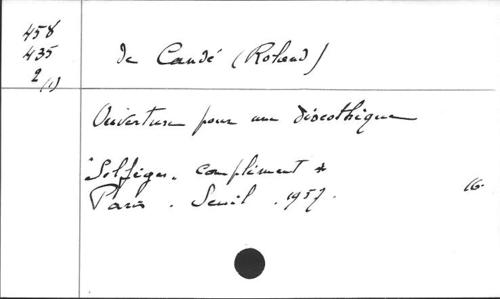 458
435
2
(1)
de Candé (Roland)
Ouverture pour une discothèque
"Solfèges. complément *
Paris. Seuil. 1957.
16.